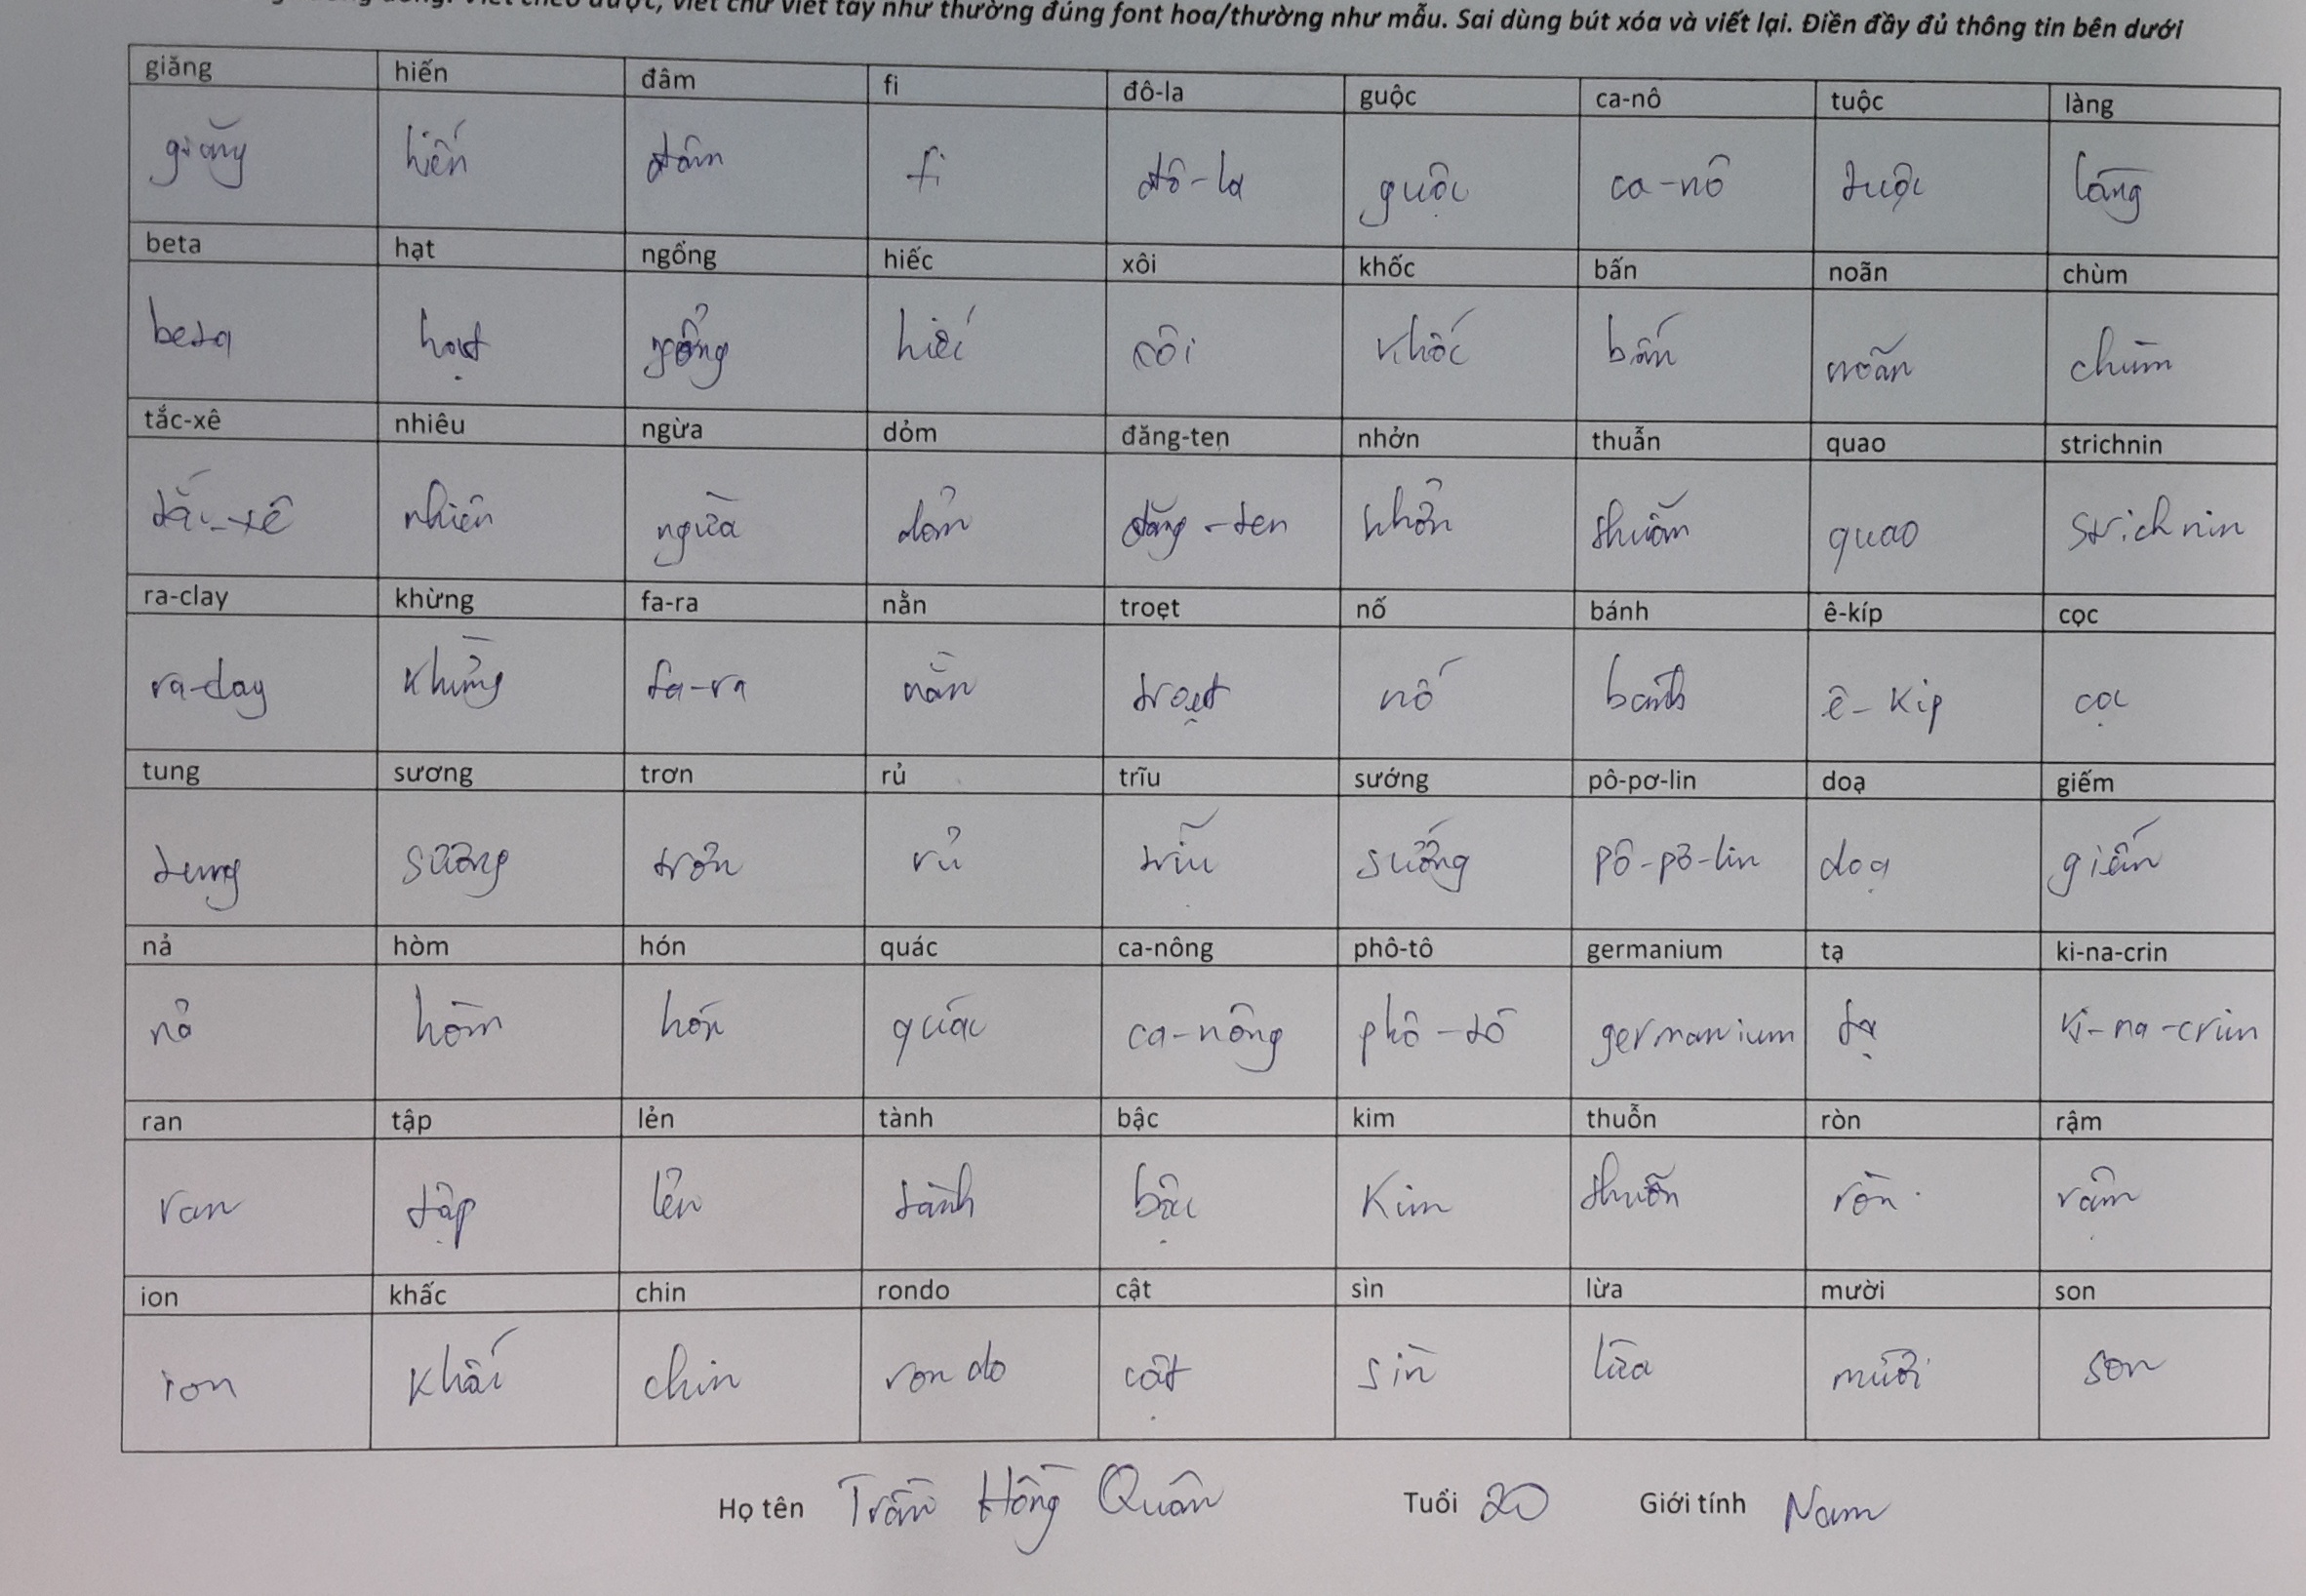 viết chữ viết tay như thường đúng font hoa/thường như mẫu. Sai dùng bút xóa và viết lại. Điền đầy đủ thông tin bên dưới
giăng hiến đâm fi đô-la guộc ca-nô tuộc làng
giăng hiến đâm fi đô-la guộc ca-nô tuộc làng
beta hạt ngổng hiếc xôi khốc bấn noãn chùm
beta hạt ngổng hiếc xôi khốc bấn noãn chùm
tắc-xê nhiêu ngừa dỏm đăng-ten nhởn thuẫn quao strichnin
tắc-xê nhiêu ngừa dỏm đăng-ten nhởn thuẫn quao strichnin
ra-clay khừng fa-ra nằn troẹt nố bánh ê-kíp cọc
ra-clay khừng fa-ra nằn troẹt nố bánh ê-kíp cọc
tung sương trơn rủ trĩu sướng pô-pơ-lin doạ giếm
tung sương trơn rủ trĩu sướng pô-pơ-lin doạ giếm
nả hòm hón quác ca-nông phô-tô germanium tạ ki-na-crin
nả hòm hón quác ca-nông phô-tô germanium tạ ki-na-crin
ran tập lẻn tành bậc kim thuỗn ròn rậm
ran tập lẻn tành bậc kim thuỗn ròn rậm
ion khấc chin rondo cật sìn lừa mười son
ion khấc chin rondo cật sìn lừa mười son
Họ tên Trần Hồng Quân Tuổi 20 Giới tính Nam